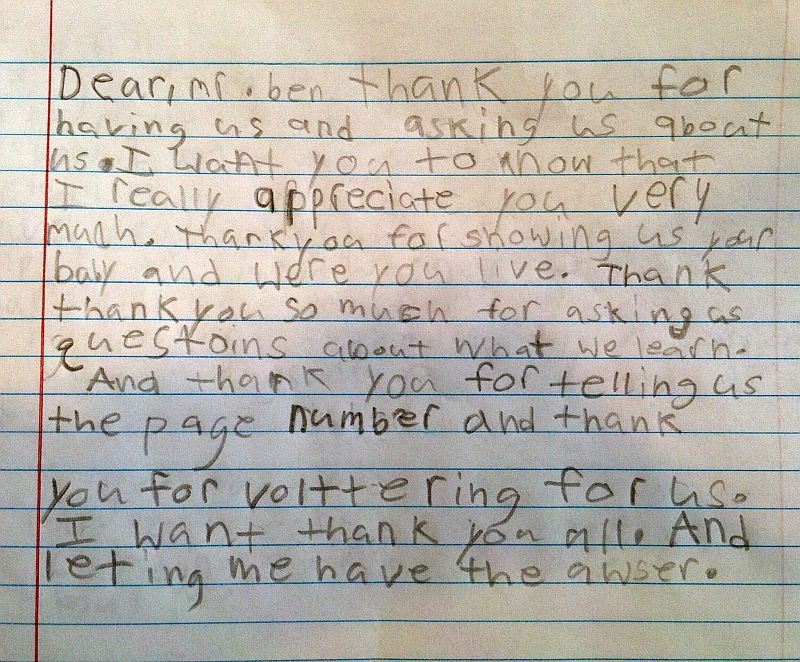 Dear, mr. ben thank you for
having us and asking us about
us. I want you to know that
I really appreciate you very
much. Thank you for showing us your
baby and were you live. Thank
thank you so much for asking us
questoins about what we learn.
And thank you for telling us
the page number and thank
you for volttering for us.
I want thank you all. And
leting me have the awser.